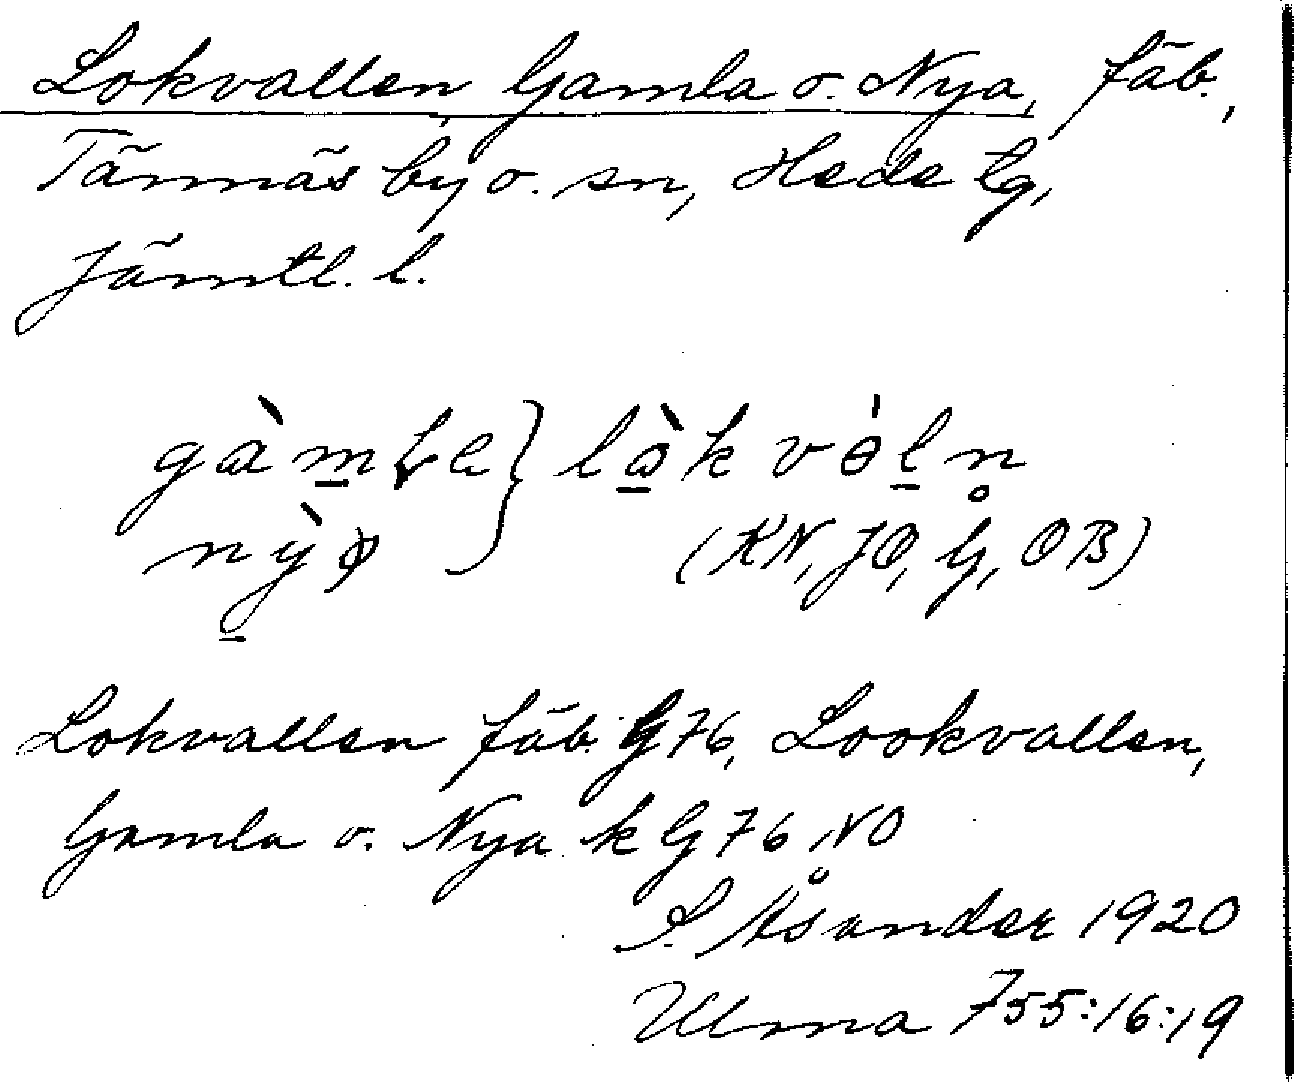 Lokvallen, Gamla o. Nya, fäb.,
Tännäs by o. sn, Hede tg,
Jämtl. l.
gàmła } lòkvöln
nỳø (KN, JO, G, OB)
Lokvallen fäb. G 76, Lookvallen,
Gamla o. Nya k G 76 NO
S. Åsander 1920
Ulma 755:16:19